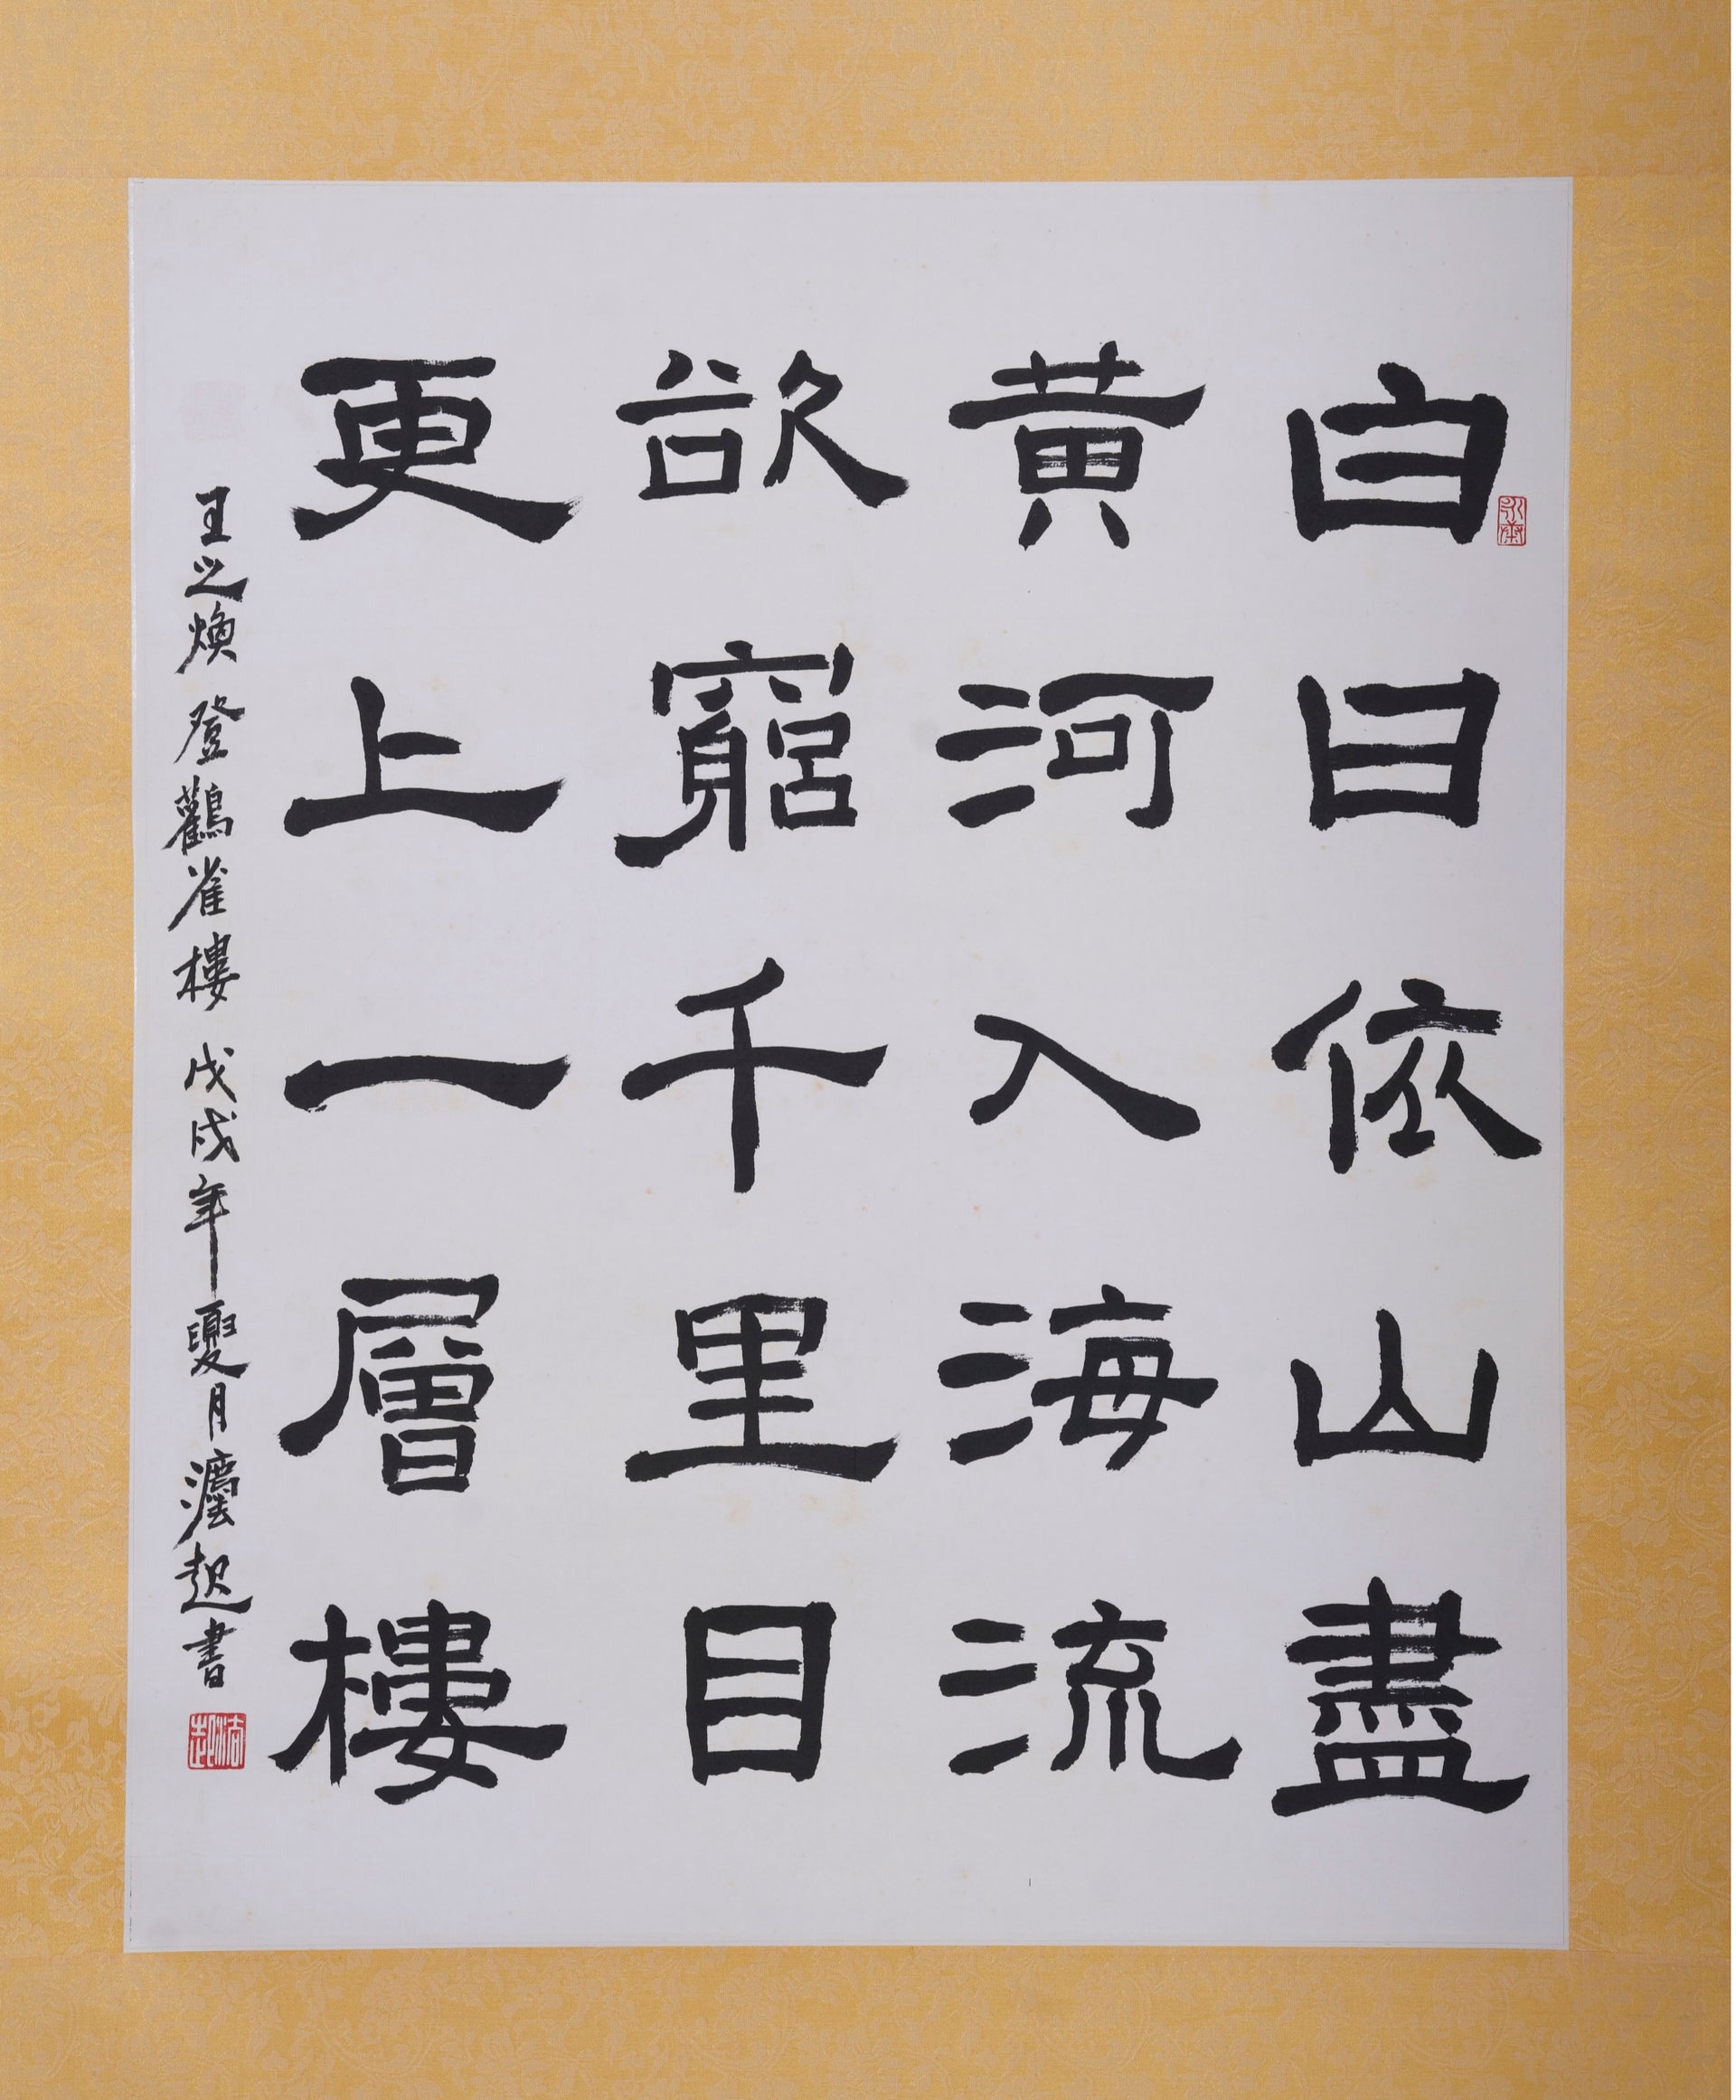 白日依山盡
黃河入海流
欲窮千里目
更上一層樓
王之煥登鸛雀樓戊戌年夏月灋起書
法起